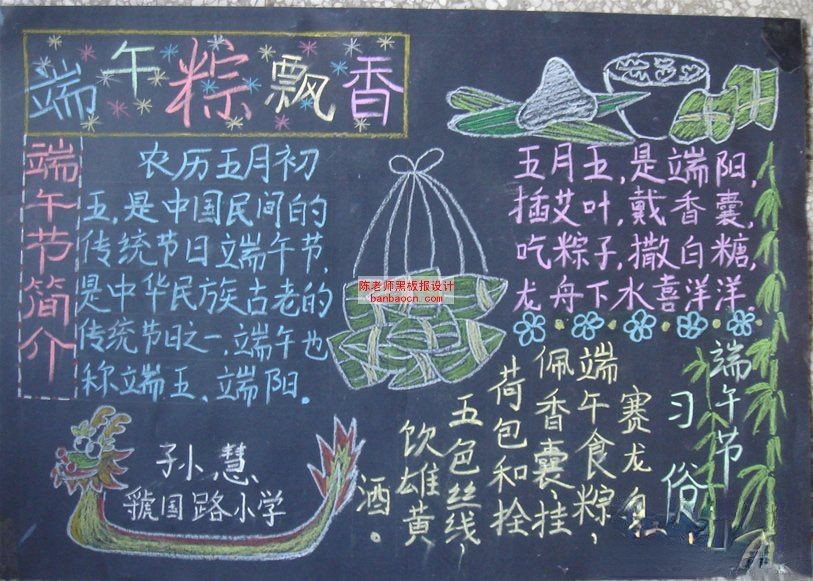 端午粽飘香
端午节简介
农历五月初
五,是中国民间的
传统节日端午节,
是中华民族古老的
传统节日之一,端午也
称端五、端阳.
陈老师黑板报设计
banbaocn.com
五月五,是端阳,
插艾叶,戴香囊,
吃粽子,撒白糖,
龙舟下水喜洋洋
端午节
习俗
赛龙舟
端午食粽,
佩香囊、挂
荷包和拴
五色丝线,
饮雄黄
酒。
孙慧
虢国路小学